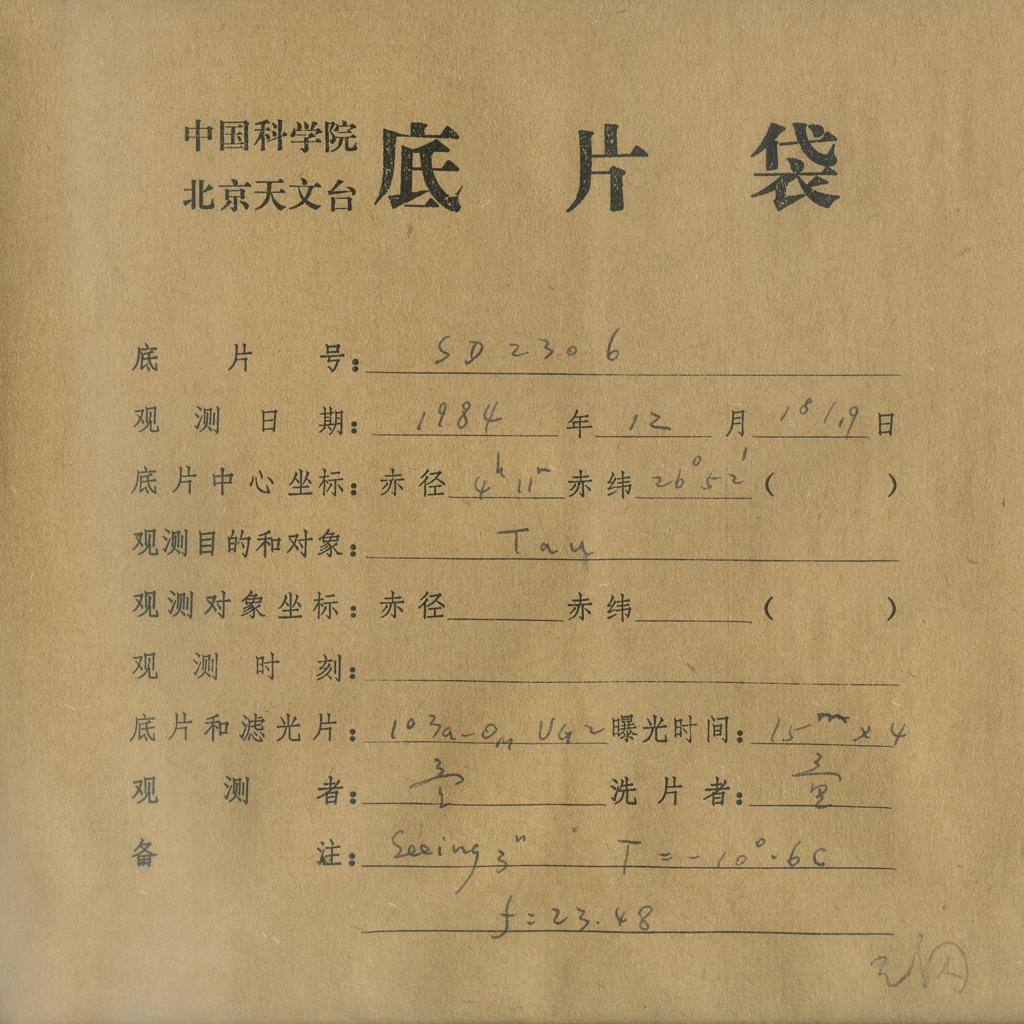 中国科学院
北京天文台
底片袋
底片号：SD2306
观测日期：1984年12月18/19日
底片中心坐标：赤径4h11m赤纬26°52′（ ）
观测目的和对象：Tau
观测对象坐标：赤径 赤纬 （ ）
观测时刻：
底片和滤光片：103a-O UG2 曝光时间：15m×4
观测者： 洗片者：
备注：Seeing 3" T=-10°.6C
f=23.48